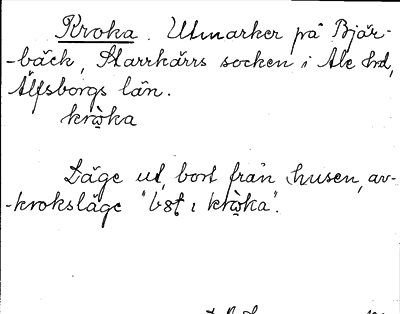 Kroka. Utmarker på Bjär-
-bäck, Starrkärrs socken i Ale hd,
Älfsborgs län.
kròka
Läge ut, bort från husen, av-
-kroksläge "bot i kròka".